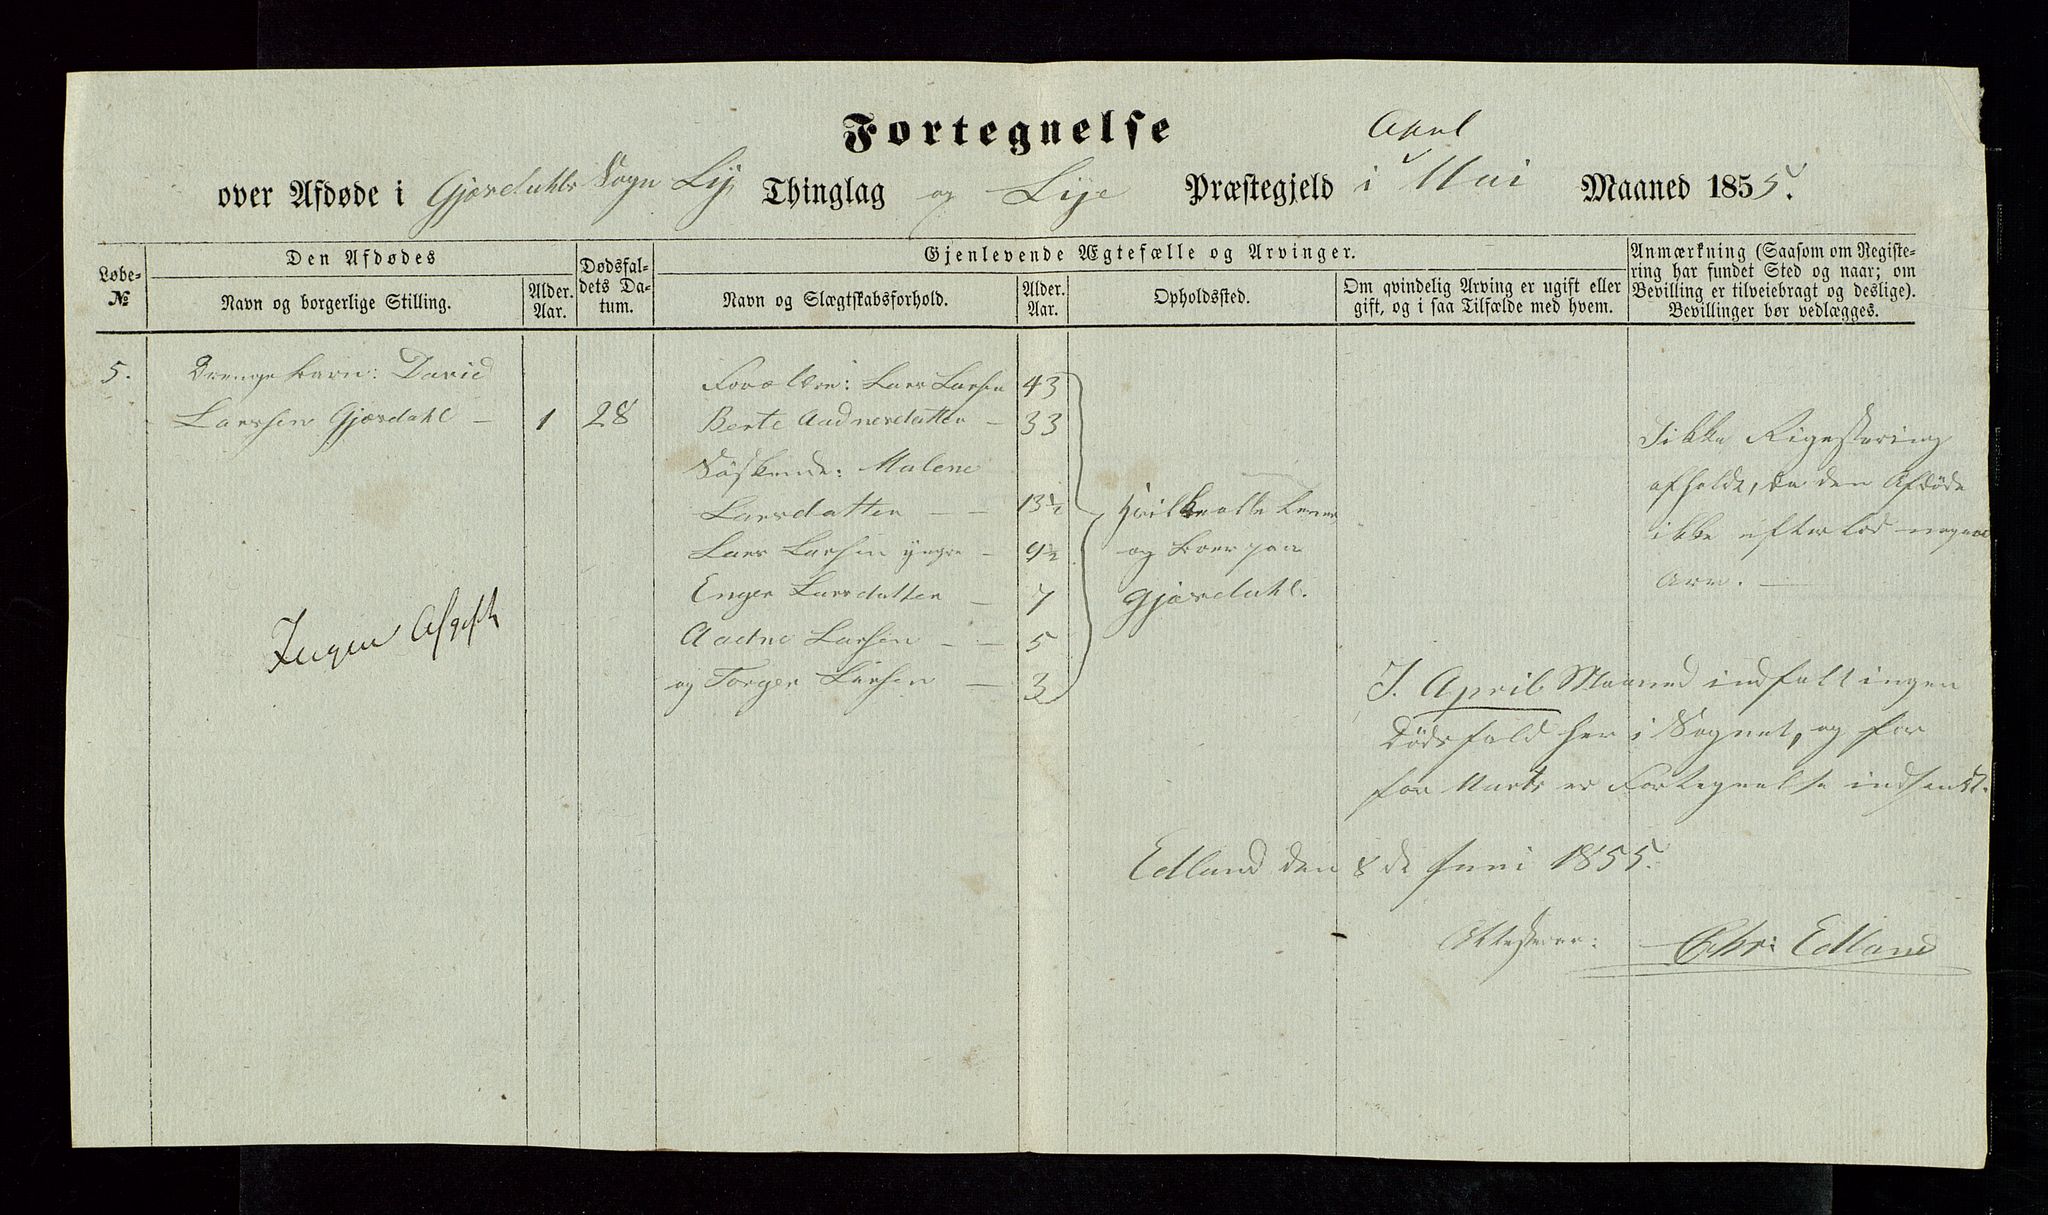 Fortegnelse
April
over Afdøde i Gjæsdahls Sogn Lye Thinglag og Lye Præstegjeld i Mai Maaned 1855.
Løbe-
№
Den Afdødes
Navn og borgerlige Stilling.
Alder.
Aar.
Dødsfal-
dets Da-
tum.
Gjenlevende Ægtefælle og Arvinger.
Navn og Slægtskabsforhold.
Alder.
Aar.
Opholdssted.
Om qvindelig Arving er ugift eller
gift, og i saa Tilfælde med hvem.
Anmærkning (Saasom om Registe-
ring har fundet Sted og naar; om
Bevilling er tilveiebragt og deslige).
Bevillinger bør vedlægges.
5. Drengebarn: David
Larssen Gjæsdahl – 1 28
Forældre: Lars Larsen 43
Berte Aadnesdatter – 33
Søskende: Malene
Larsdatter – – 13½
Lars Larsen yngre – 9½
Enger Larsdatter – 7
Aadne Larsen – – 5
og Torger Larsen – 3
Hvilke alle lever
og boer paa
Gjæsdahl.
Ikke Rigestering
afholdt, da den Afdøde
ikke efterlod nogen
Arv. —
Ingen Afgift
I April Maaned indfalt ingen
Dødsfald her i Sognet, og for
for Marts er Fortegnelse indsendt.
Edland den 8de Juni 1855.
Attesterer: Chr: Edland